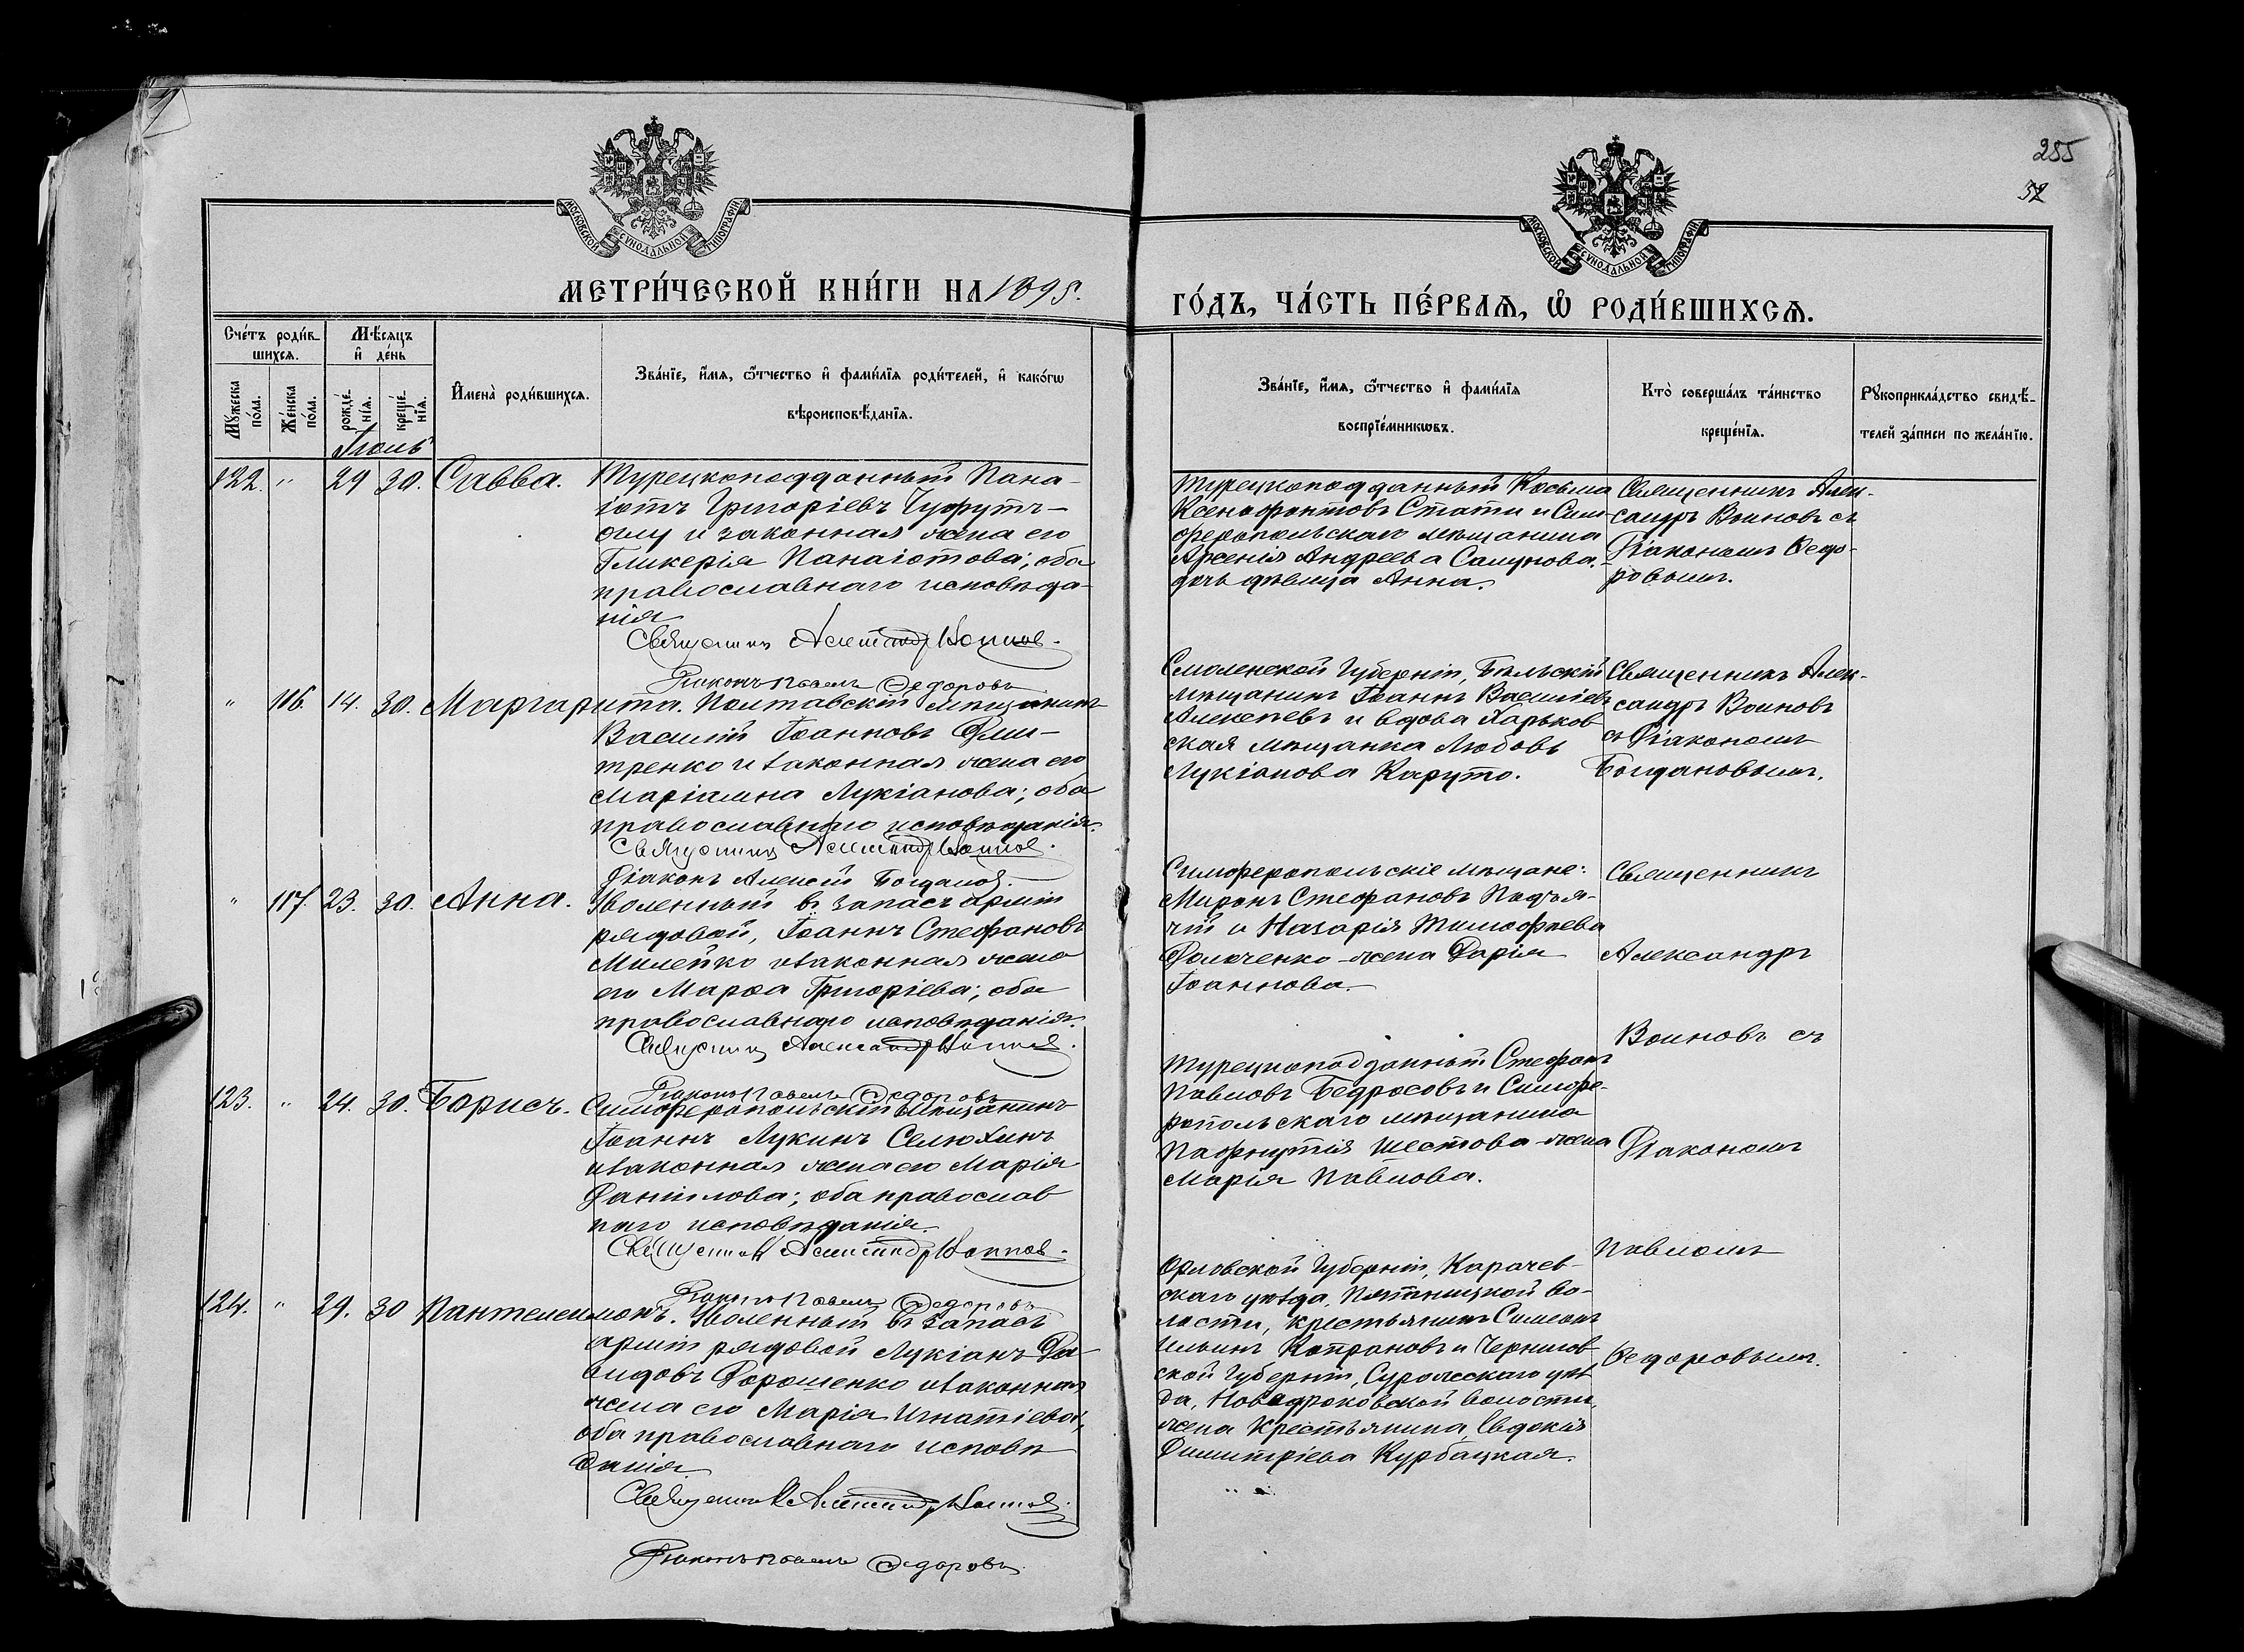 255
32
МОСКОВСКОЙ СУНОДАЛЬНОЙ ТИПОГРАФІИ
МОСКОВСКОЙ СУНОДАЛЬНОЙ ТИПОГРАФІИ
МЕТРИ́ЧЕСКОЙ КНИ́ГИ НА 1895.
ГО́ДЪ, ЧА́СТЬ ПЕ́РВАѦ, Ѡ РОДИ́ВШИХСѦ.
Сче́тъ роди́в-
шихсѧ.
Мѣ́сѧцъ
и҆ де́нь
Мꙋ́жеска
по́ла.
Же́нска
по́ла.
рожде́-
нїѧ.
креще́-
нїѧ.
И҆мена̀ роди́вшихсѧ.
Зва́нїе, и҆́мѧ, ѻ҆́тчество и҆ фами́лїѧ роди́телей, и҆ како́гѡ
вѣроисповѣ́данїѧ.
Зва́нїе, и҆́мѧ, ѻ҆́тчество и҆ фами́лїѧ
воспрїе́мникѡвъ.
Кто̀ соверша́лъ та́инство
креще́нїѧ.
Рꙋкоприкла́дство свидѣ́-
телей за́писи по жела́нїю.
122. " 29 30. Савва. Турецкоподданный Пана-
іотъ Григоріевъ
и законная жена его
Гликерія Панаіотова; оба
православнаго исповѣда-
нія
Священникъ Александръ Воиновъ.
Діаконъ Павелъ Ѳедоровъ
Турецкоподданный Косьма
Ксенофонтовъ Стати и Сим-
феропольскаго мѣщанина
Арсенія Андреева Самунова.
дочь дѣвица Анна.
Священникъ Алек-
сандръ Воиновъ съ
Діакономъ Ѳедо-
ровымъ.
" 116. 14. 30. Маргарита. Полтавскій мѣщанинъ
Василій Іоанновъ Дми-
тренко и законная жена его
Маріамна Лукіанова; оба
православнаго исповѣданія.
Священникъ Александръ Воиновъ.
Діаконъ Алексій Богданов.
Смоленской Губерніи, Бѣльскій
мѣщанинъ Іоаннъ Васильевъ
Алексѣевъ и вдова Харьков-
ская мѣщанка Любовь
Лукіанова Каруто.
Священникъ Алек-
сандръ Воиновъ
съ Діакономъ
Богдановымъ.
" 117. 23. 30. Анна. Уволенный въ запасъ арміи
рядовой, Іоаннъ Стефановъ
Милейко и законная жена
его Марѳа Григоріева; оба
православнаго исповѣданія.
Священникъ Александръ Воиновъ.
Діаконъ Павелъ Ѳедоровъ
Симферопольскіе мѣщане:
Миронъ Стефановъ Подъя-
чій и Назарія Тимофеева
жена Дарія
Іоаннова.
Священникъ
Александръ
Воиновъ съ
Діакономъ
Павломъ
Ѳедоровымъ.
123. " 24. 30. Борисъ. Симферопольскій мѣщанинъ
Іоаннъ Лукинъ Селюхинъ
и законная жена его Марія
Даніилова; оба православ
наго исповѣданія.
Священникъ Александръ Воиновъ.
Діаконъ Павелъ Ѳедоровъ
Турецкоподданный Стефанъ
Павловъ Бедросовъ и Симфе-
ропольскаго мѣщанина
Пафнутія Шестова жена
Марія Павлова.
124. " 29. 30 Пантелеимонъ. Уволенный въ запасъ
арміи рядовой Лукіанъ Да-
видовъ Дорошенко и законная
жена его Марія Игнатіева;
оба православнаго исповѣ
данія.
Священникъ Александръ Воиновъ.
Діаконъ Павелъ Ѳедоровъ
Орловской Губерніи, Карачев-
скаго уѣзда, Пятницкой во-
лости, крестьянинъ Симеонъ
Ильинъ и Чернигов-
ской Губерніи, Суражскаго уѣз
да, волости,
жена крестьянина, Евдокія
Димитріева Курбацкая.